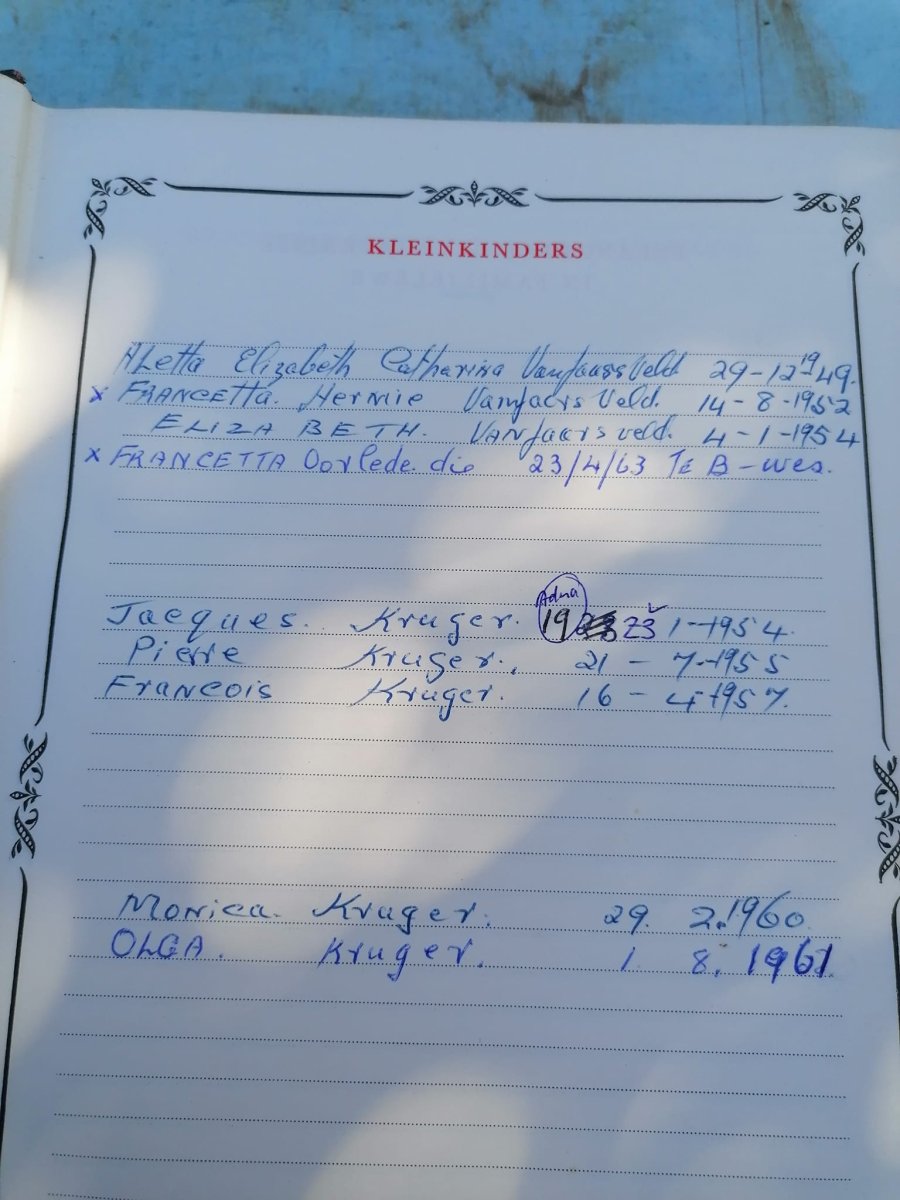 KLEINKINDERS
ALetta Elizabeth Catharina VanJaarsVeld 29-12-1949.
x FRANCEtta. Hermie VanJaarsVeld. 14-8-1952
ELIZABETH. VanJaarsveld. 4-1-1954
x FRANCETTA Oorlede die 23/4/63 Te B-wes.
Jacques. Kruger. 19 23 1-1954.
Pierre Kruger. 21-7-1955
Francois Kruger. 16-4-1957.
Monica. Kruger. 29. 2.1960
OLGA. Kruger. 1. 8. 1961.